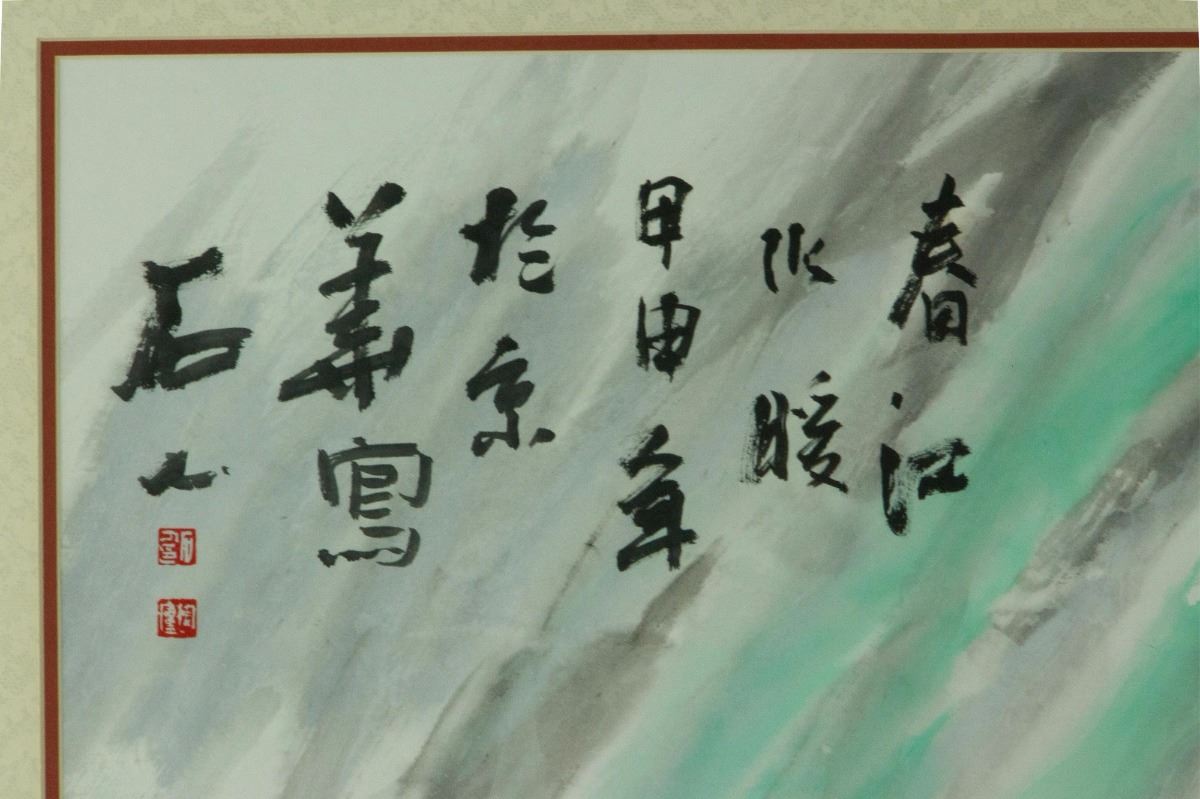 春江
水暖
甲申年
於京
華寫
石山